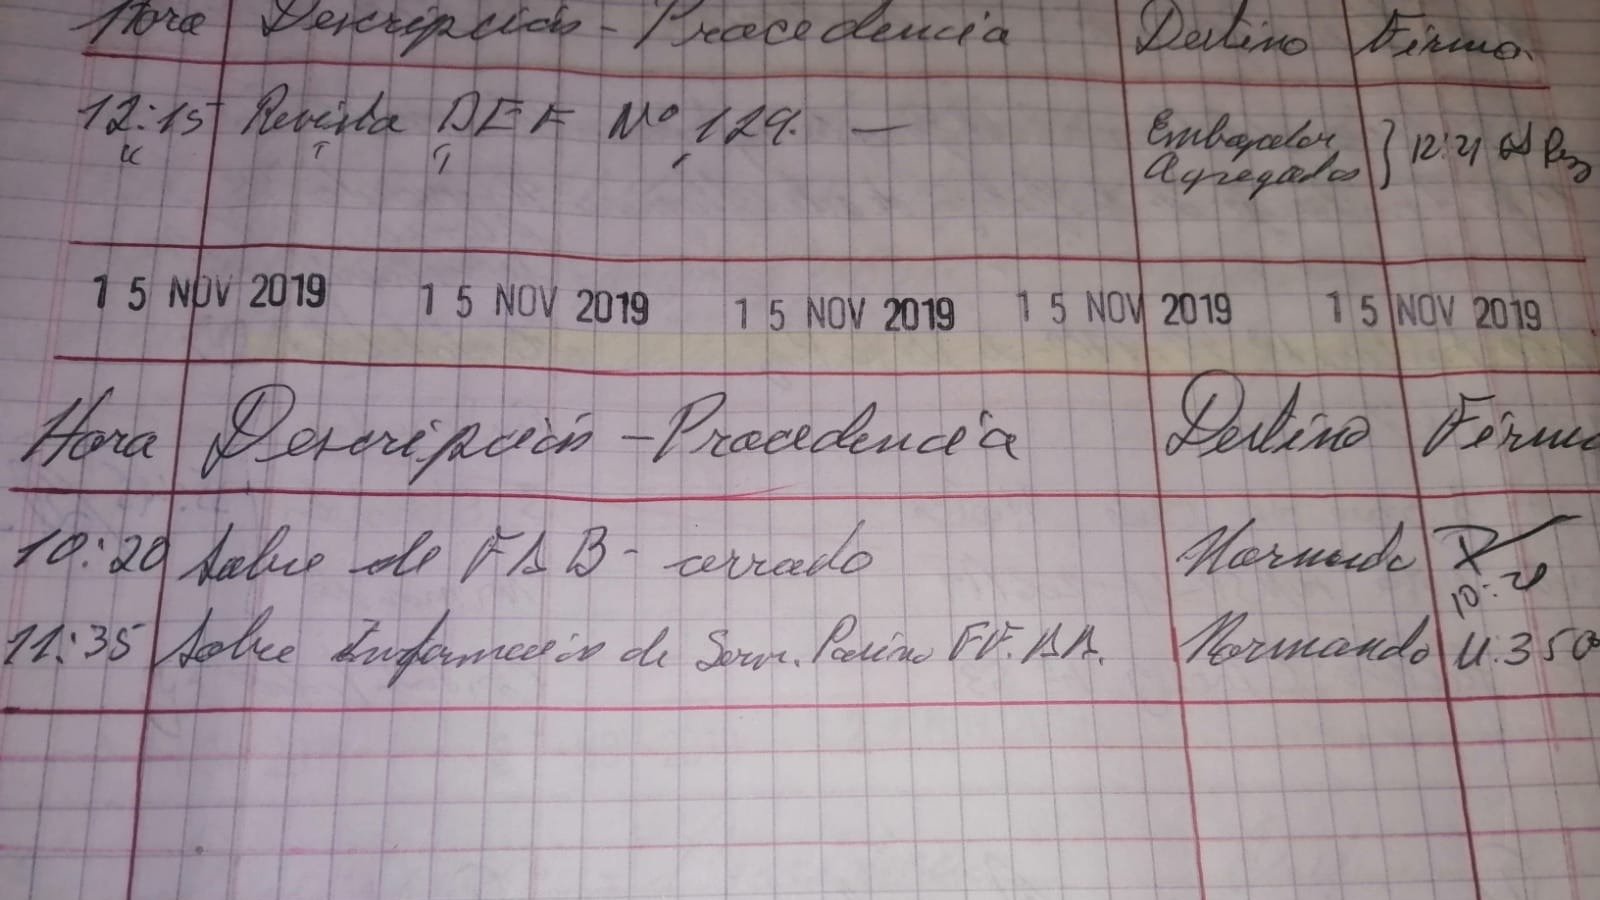 Hora Descripción - Procedencia Destino Firma
12:15 Revista DEF Nº 129. — Embajador 12:21
" " " " Agregados
15 NOV 2019 15 NOV 2019 15 NOV 2019 15 NOV 2019 15 NOV 2019
Hora Descripción - Procedencia Destino Firma
10:20 Sobre de FAB - cerrado Normando
10:20
11:35 Sobre Información de Serv. Pasivo FF.AA. Normando 11:35